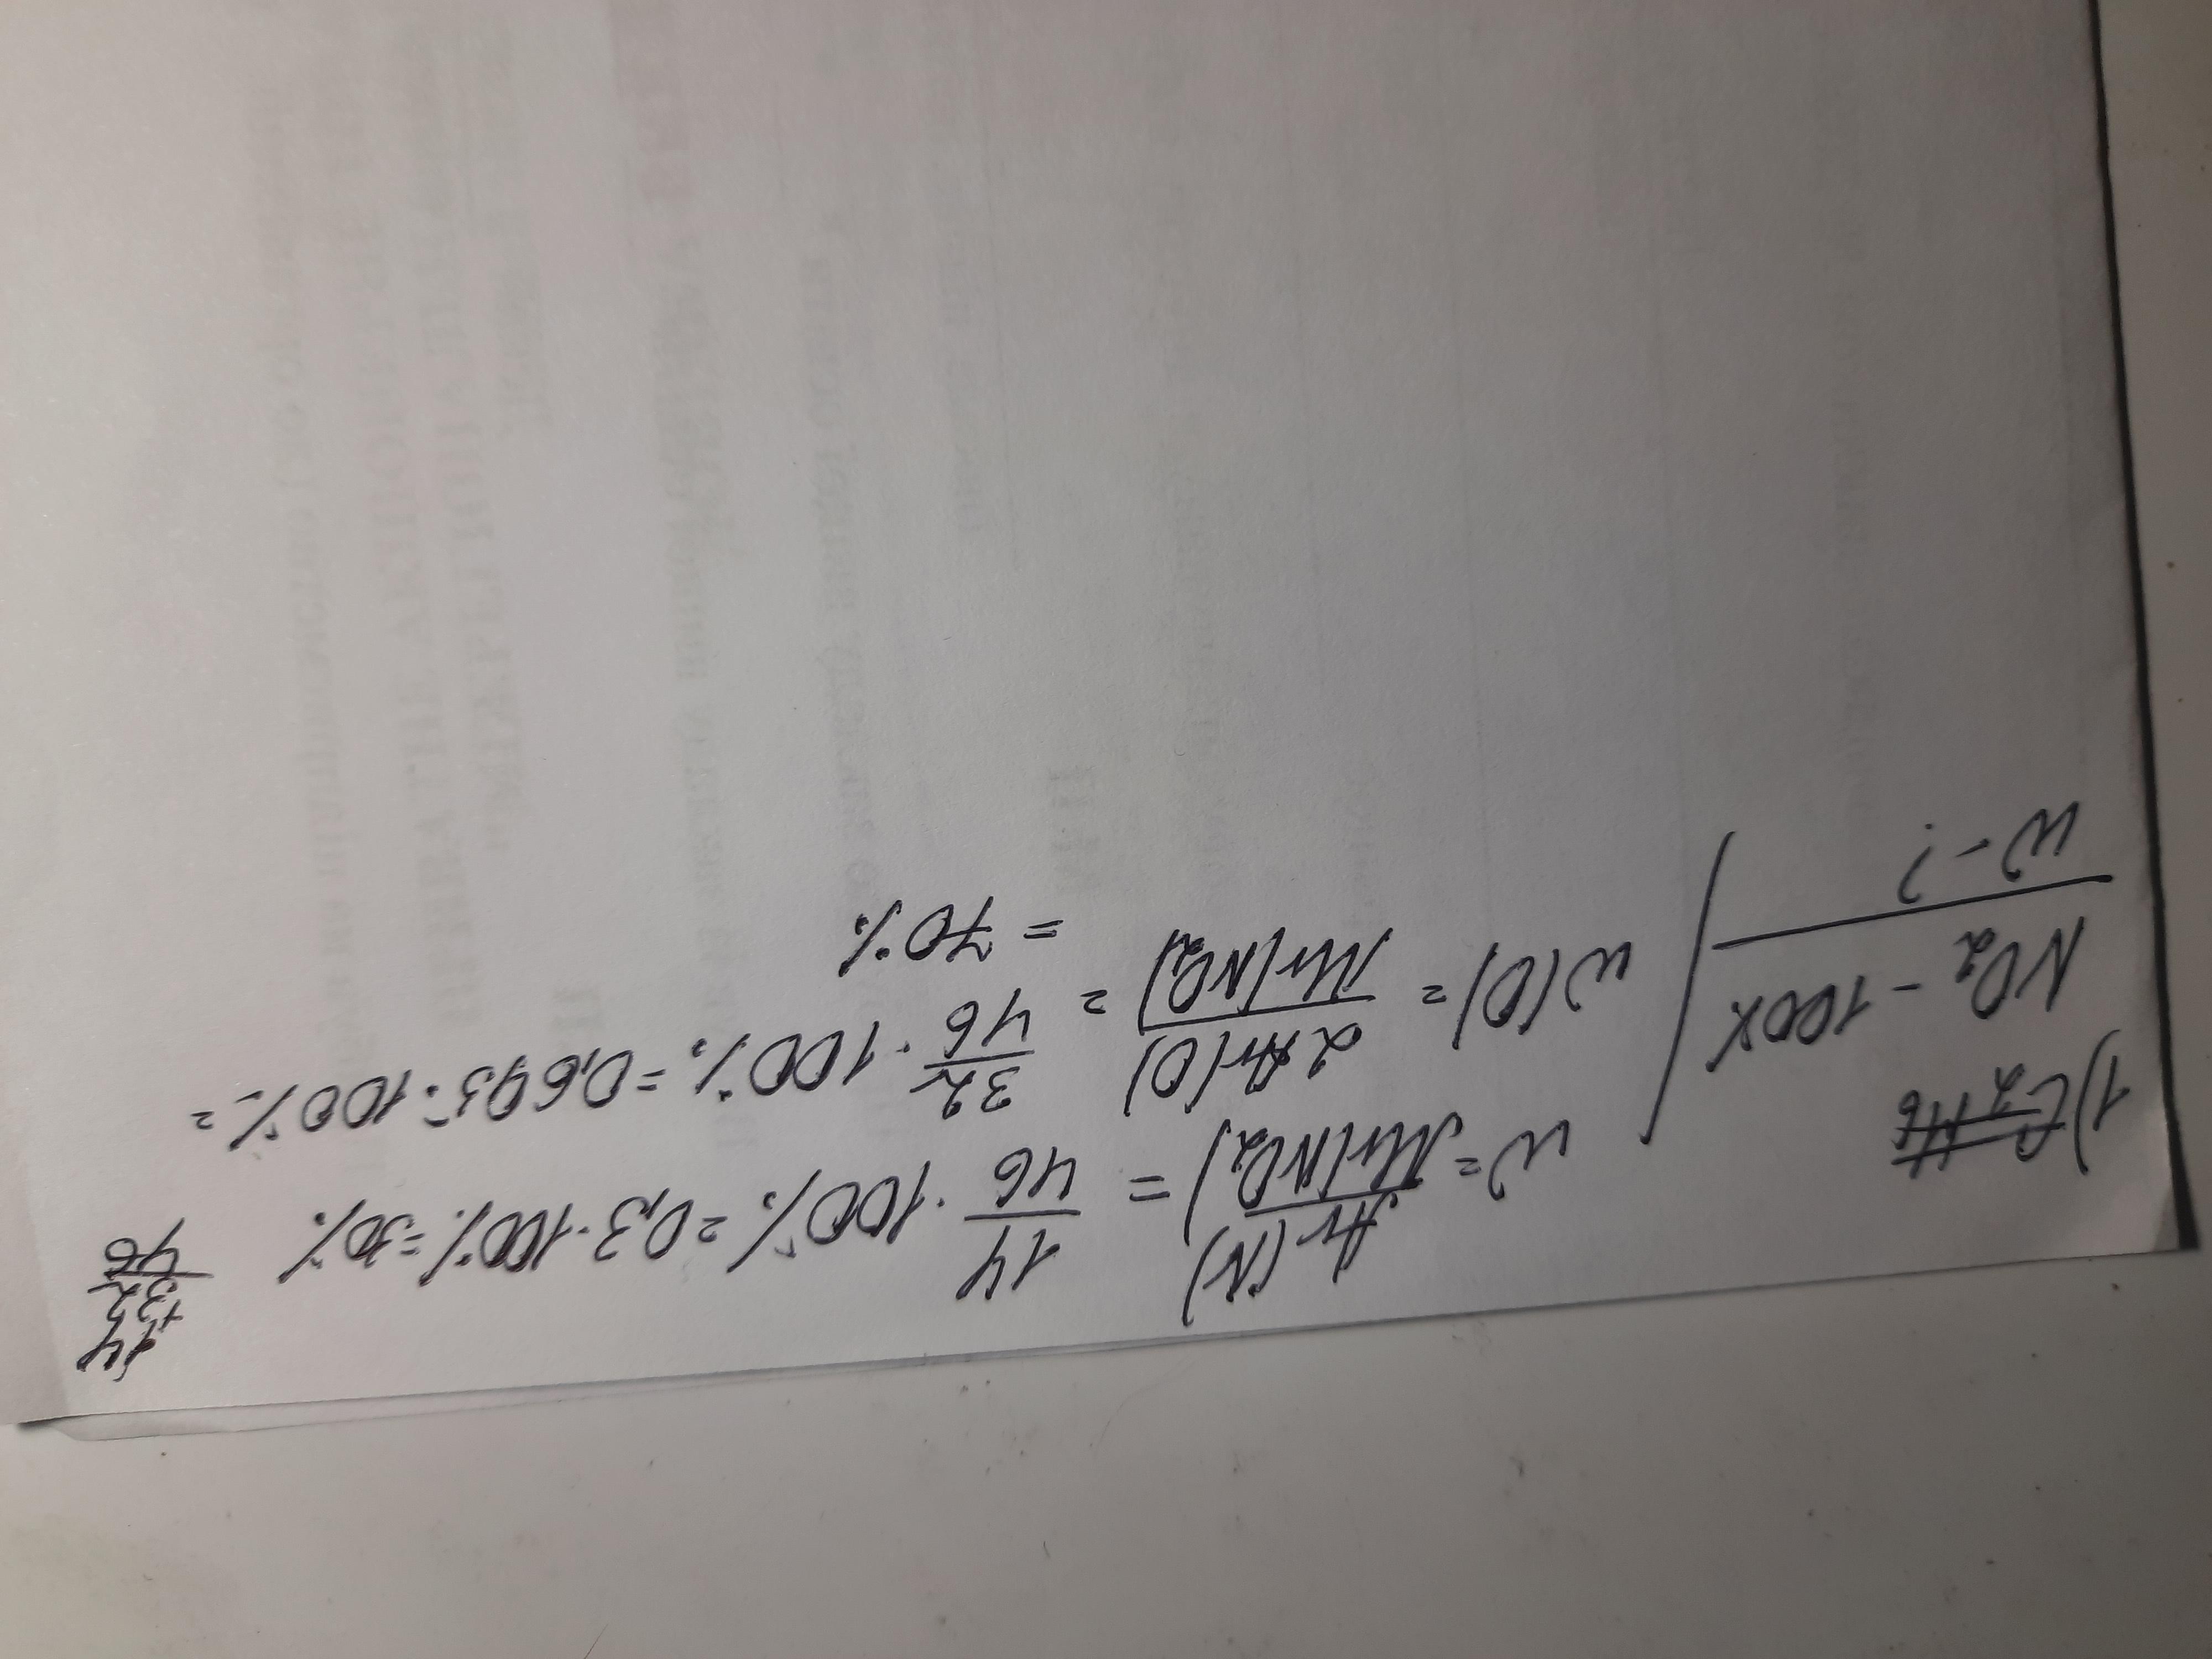 1) C₂H₆
NO₂ - 100%
w - ?
w = Ar(N) / Mr(NO₂) = 14/46 · 100% = 0,3 · 100% = 30%
w(O) = 2Ar(O) / Mr(NO₂) = 32/46 · 100% = 0,695 · 100% =
= 70%
14
+32
46